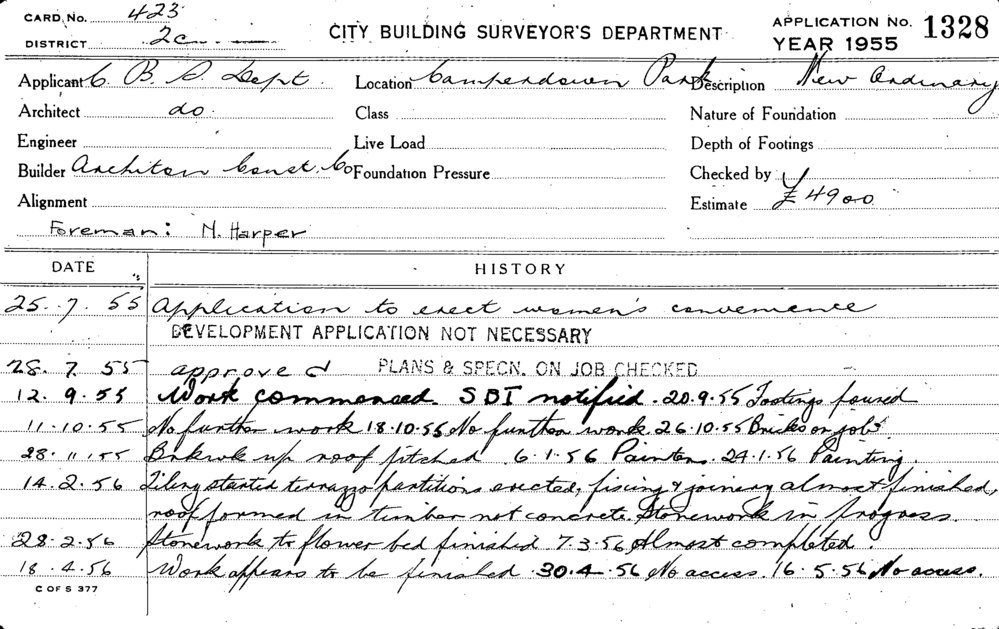 CARD. No. 423
DISTRICT 2c
CITY BUILDING SURVEYOR'S DEPARTMENT
APPLICATION No. 1328
YEAR 1955
Applicant C B S Dept. Location Camperdown Park Description New Ordinary
Architect do. Class Nature of Foundation
Engineer Live Load Depth of Footings
Builder Architon Const. Co Foundation Pressure Checked by
Alignment Estimate £4900
Foreman: N. Harper
DATE HISTORY
25. 7. 55 Application to erect women's convenience
DEVELOPMENT APPLICATION NOT NECESSARY
28. 7. 55 approved PLANS & SPECN. ON JOB CHECKED
12. 9. 55 Work commenced. SBI notified. 20.9.55 Footings poured
11.10.55 No further work 18.10.55 No further work. 26.10.55 Bricks on job.
28.11.55 Brkwk up roof pitched. 6.1.56 Painters. 24.1.56 Painting.
14.2.56 Tiling started terrazzo partitions erected, fixing & joinery almost finished,
roof formed in timber not concrete. Stonework in progress.
28.2.56 Stonework to flower bed finished 7.3.56 Almost completed.
18.4.56 Work appears to be finished. 30.4.56 No access. 16.5.56 No access.
C OF S 377